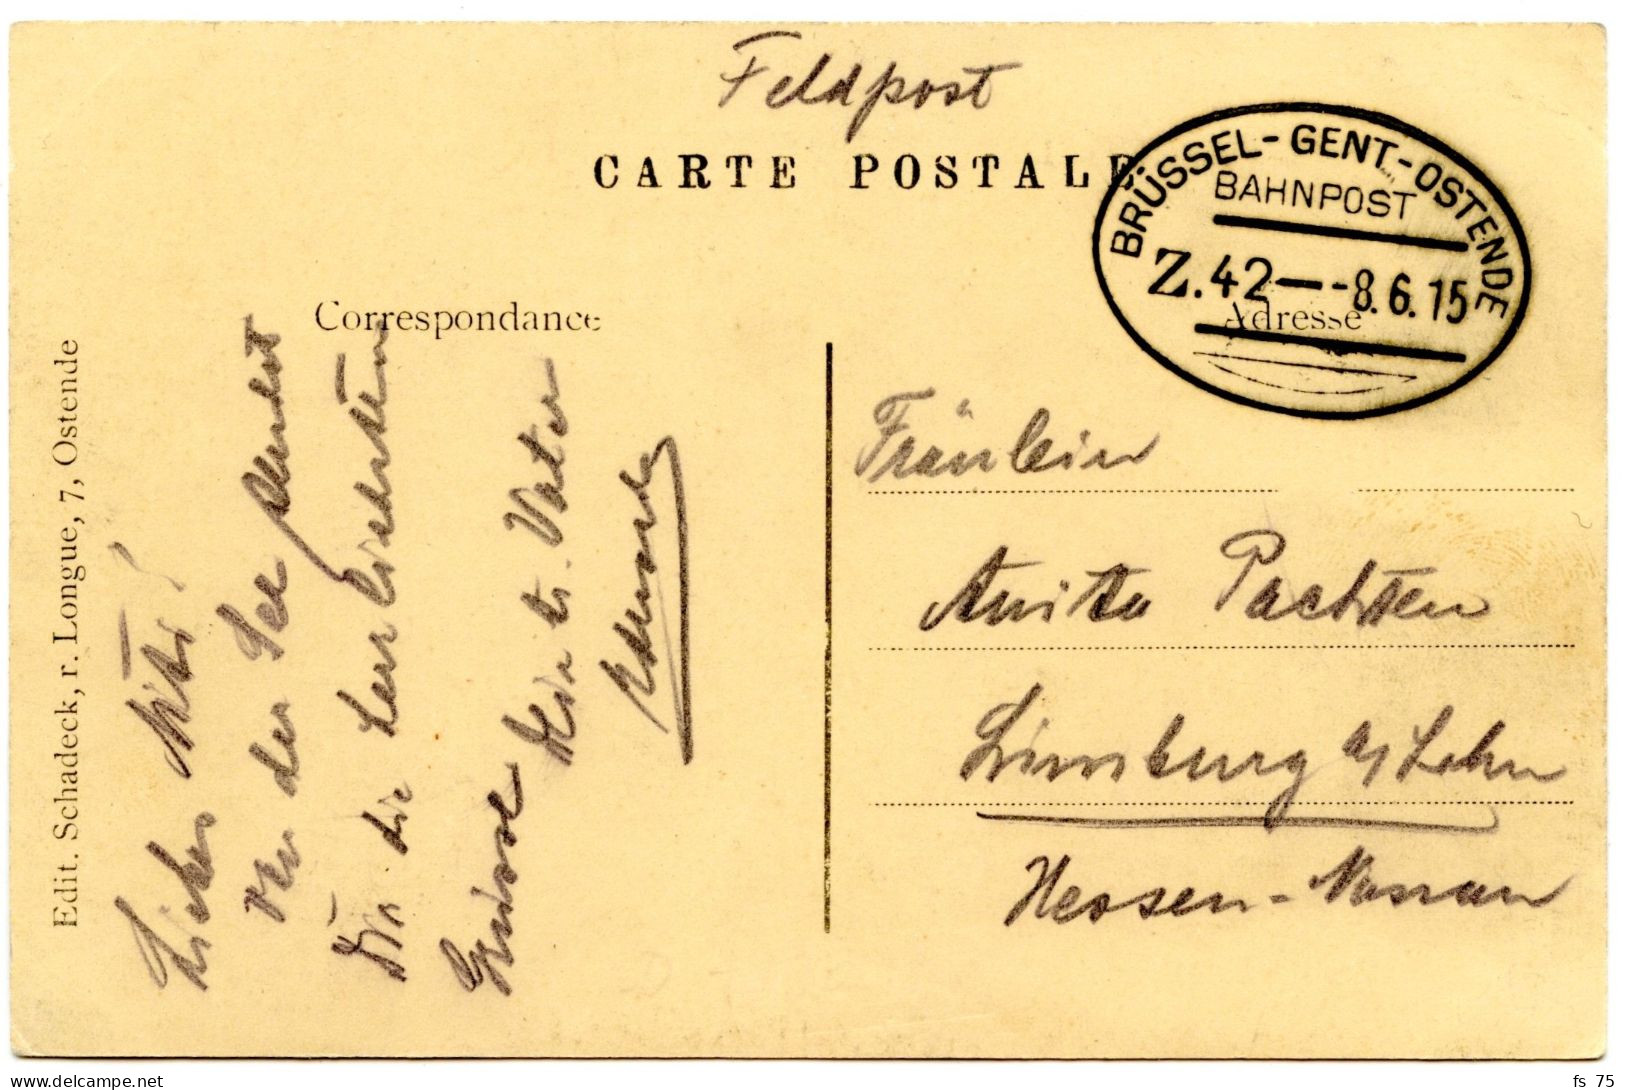 Feldpost
CARTE POSTALE
BRÜSSEL-GENT-OSTENDE
BAHNPOST
Z.42 — -8.6.15
Correspondance
Adresse
Edit. Schadeck, r. Longue, 7, Ostende
der See sendet
Dir die
Grüsse Dein tr. Vater
Fräulein
Anita Pachten
Limburg a/Lahn
Hessen-Nassau
delcampe.net
fs_75